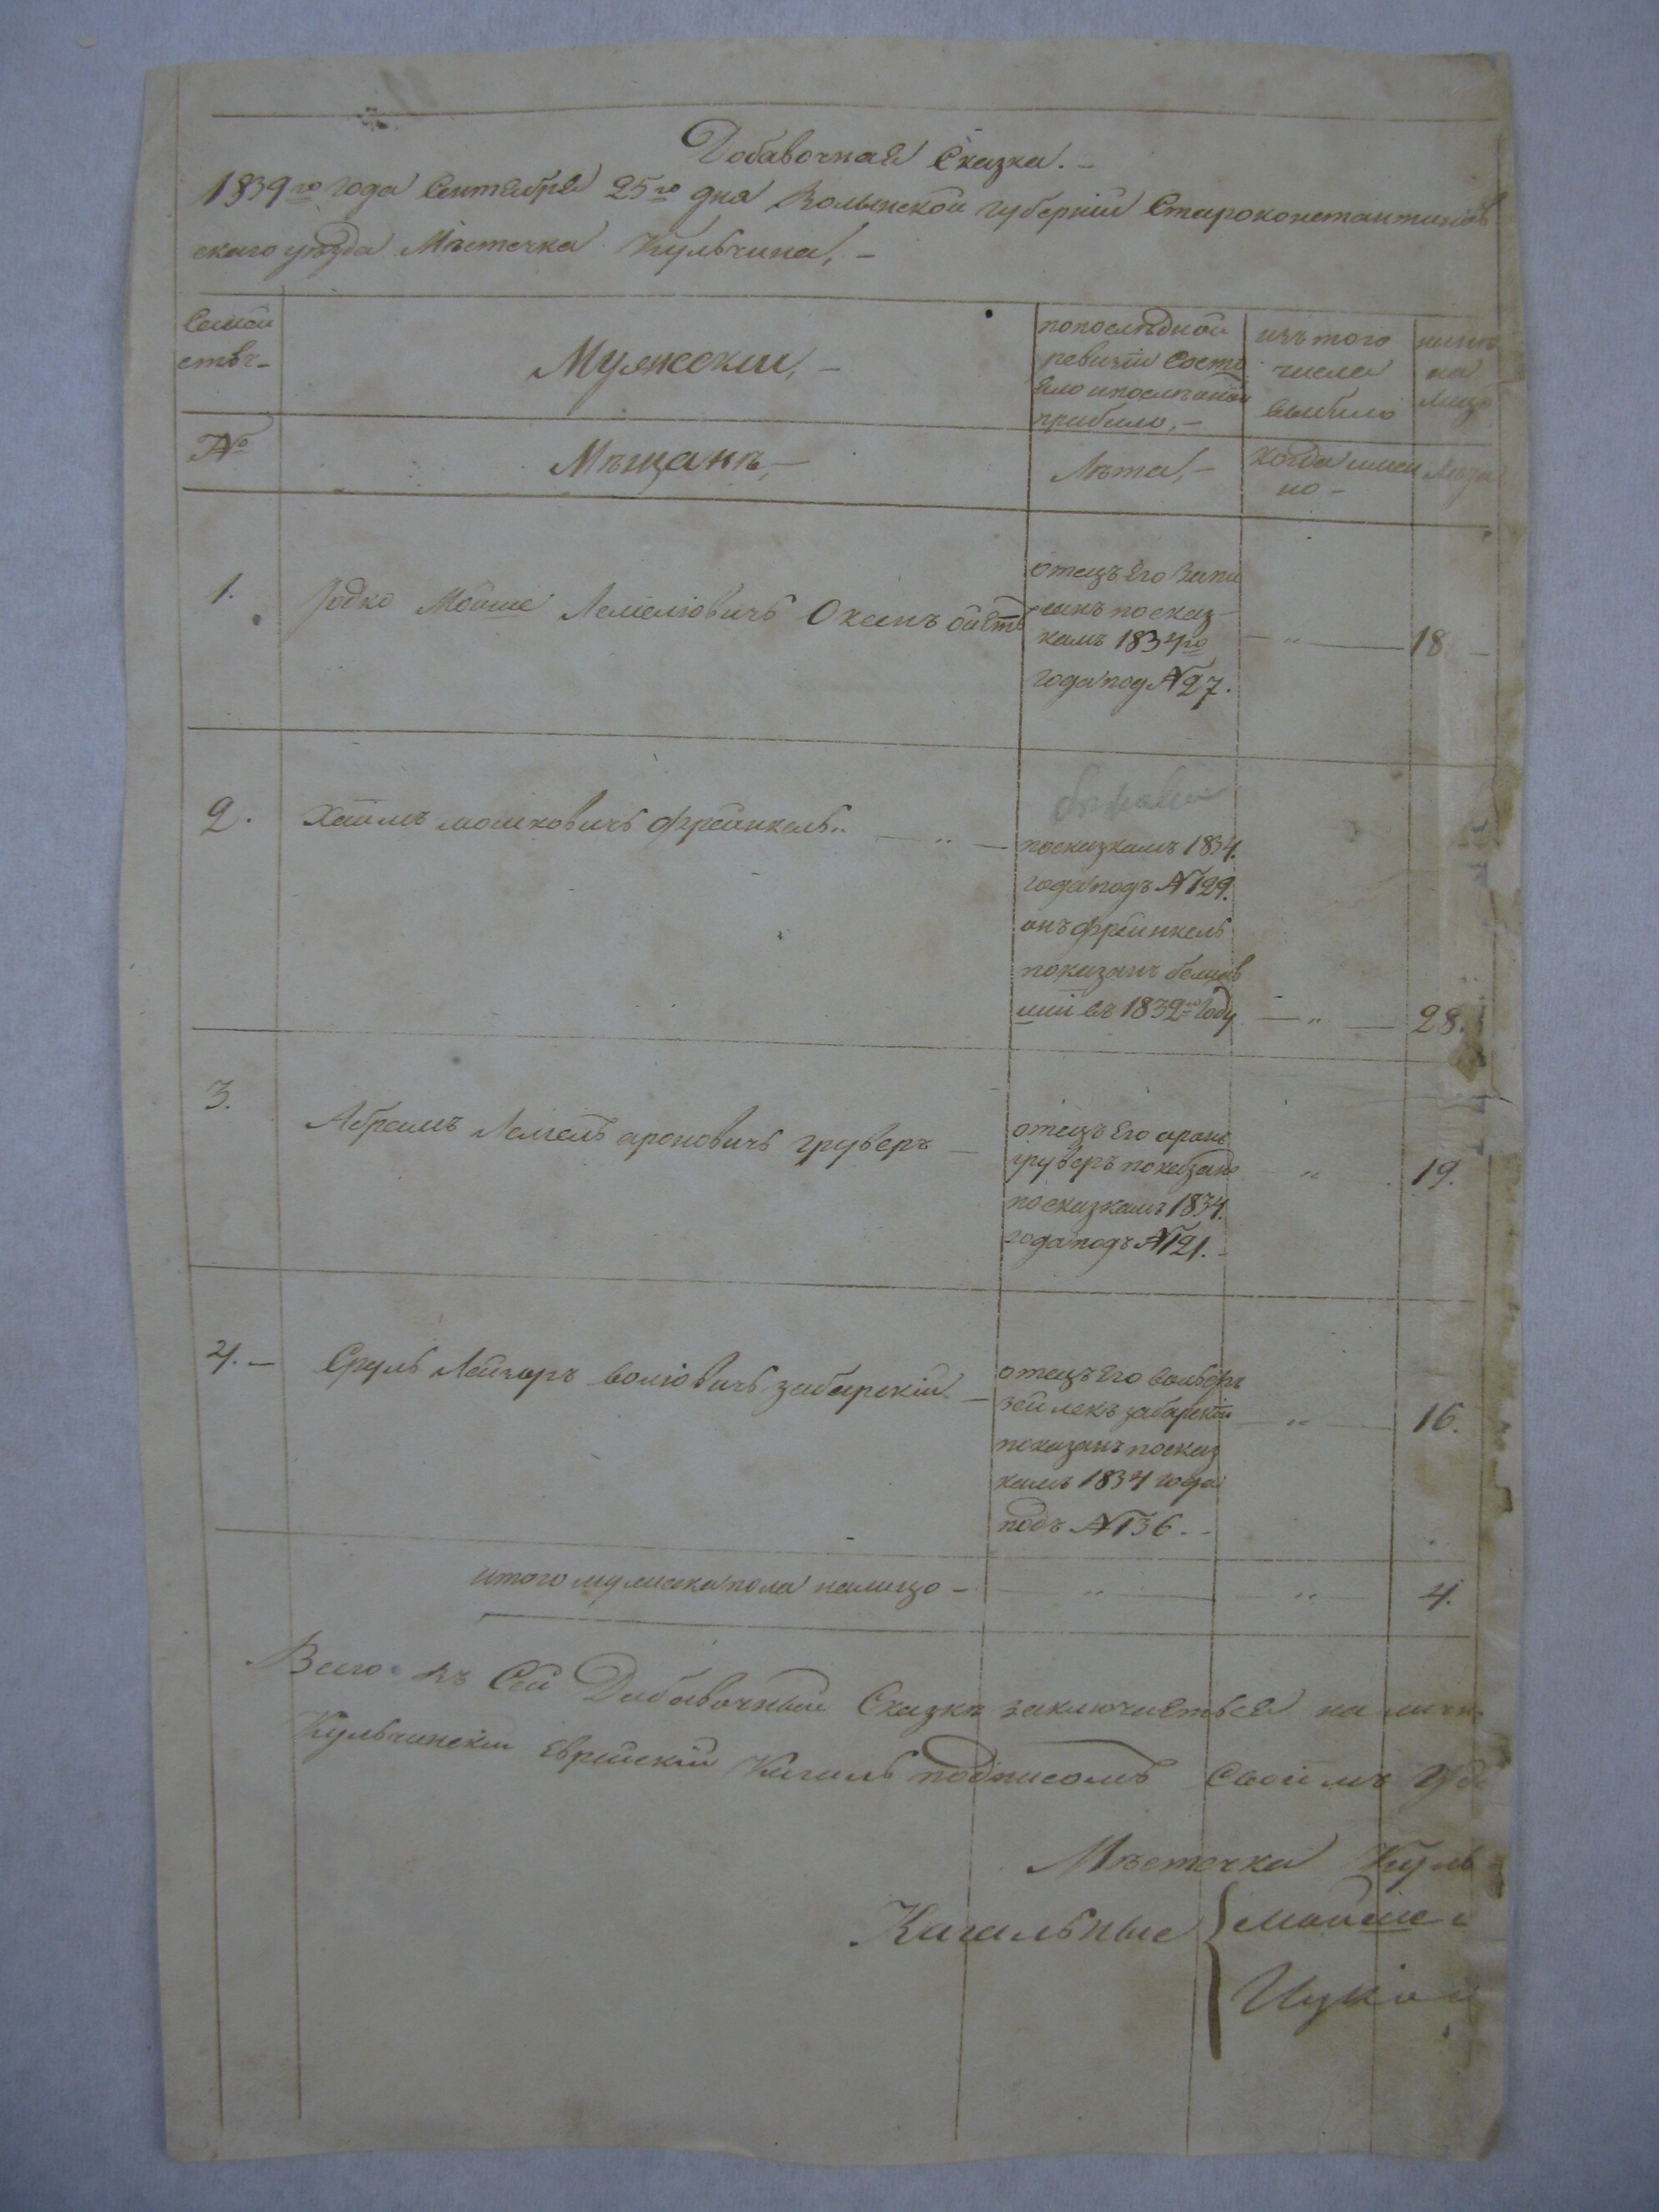 Добавочная Сказка. –
1839го года Сентября 25го дня Волынской губерніи Староконстантинов
ского уѣзда Мѣстечка Кульчина, –
Семей
ств. –
Мужескій, –
попослѣдной
ревизіи Состо
яло ипослѣоной
прибыло, –
изътого
числа
выбыло
нынѣ
на
лицо
№
Мѣщанъ, –
Лѣта, –
Когда имен
но –
Лѣта
1.
Іодко Мойше Лемеліовичъ Океинъ
отецъ Его Запи
санъ посказ–
камъ 1834го
года под №27.
– „ – 18 –
2.
Хаимъ мошковичъ Фреинкель „ – „ –
посказкамъ 1834.
года подъ №129.
онъ Фреинкель
показанъ бежав
шій въ 1832мъ Году
– „ – 28.
3.
Абрамъ Лемель ароновичъ груверъ –
отецъ Его аронъ
груверъ показанъ
посказкамъ 1834.
года подъ №121. –
– „ – 19.
4. –
Сруль Лейзоръ воліовичъ забарскій –
отецъ Его вольфъ
Зейлекъ забарскій
показанъ посказ
камъ 1834 года
подъ №136. –
– „ – 16.
итого мужеска пола налицо – – „ – – „ – 4.
Всего въ Сей Добавочный Сказкѣ заключаеться на личн
Кульчинскій Еврейскій Кагалъ подписомъ Своимъ Удо
Мѣстечка Куль
Кагальные { Мойше
Ицко